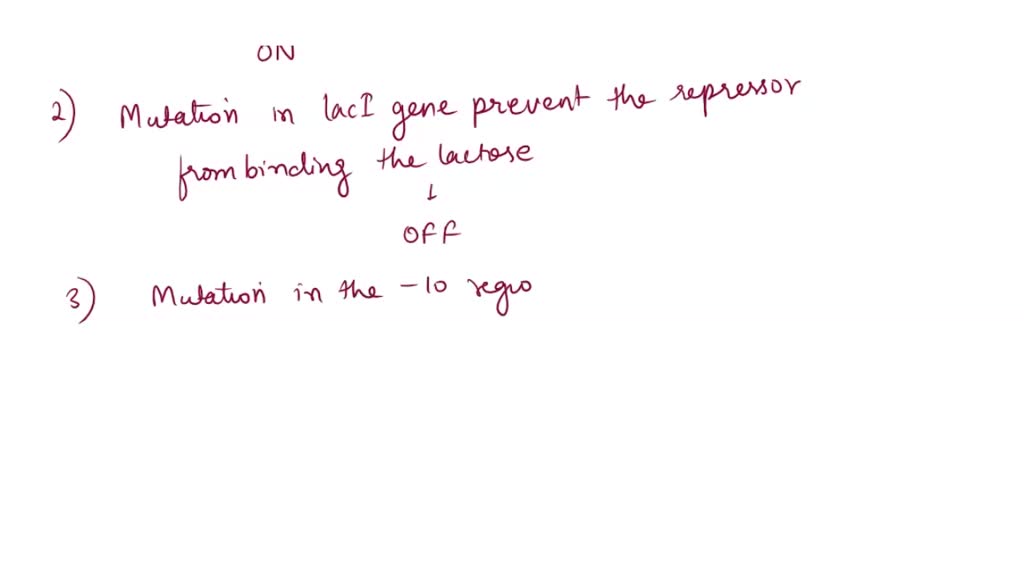 ON
2) Mutation in lacI gene prevent the repressor
from binding the lactose
↓
OFF
3) Mutation in the -10 regio